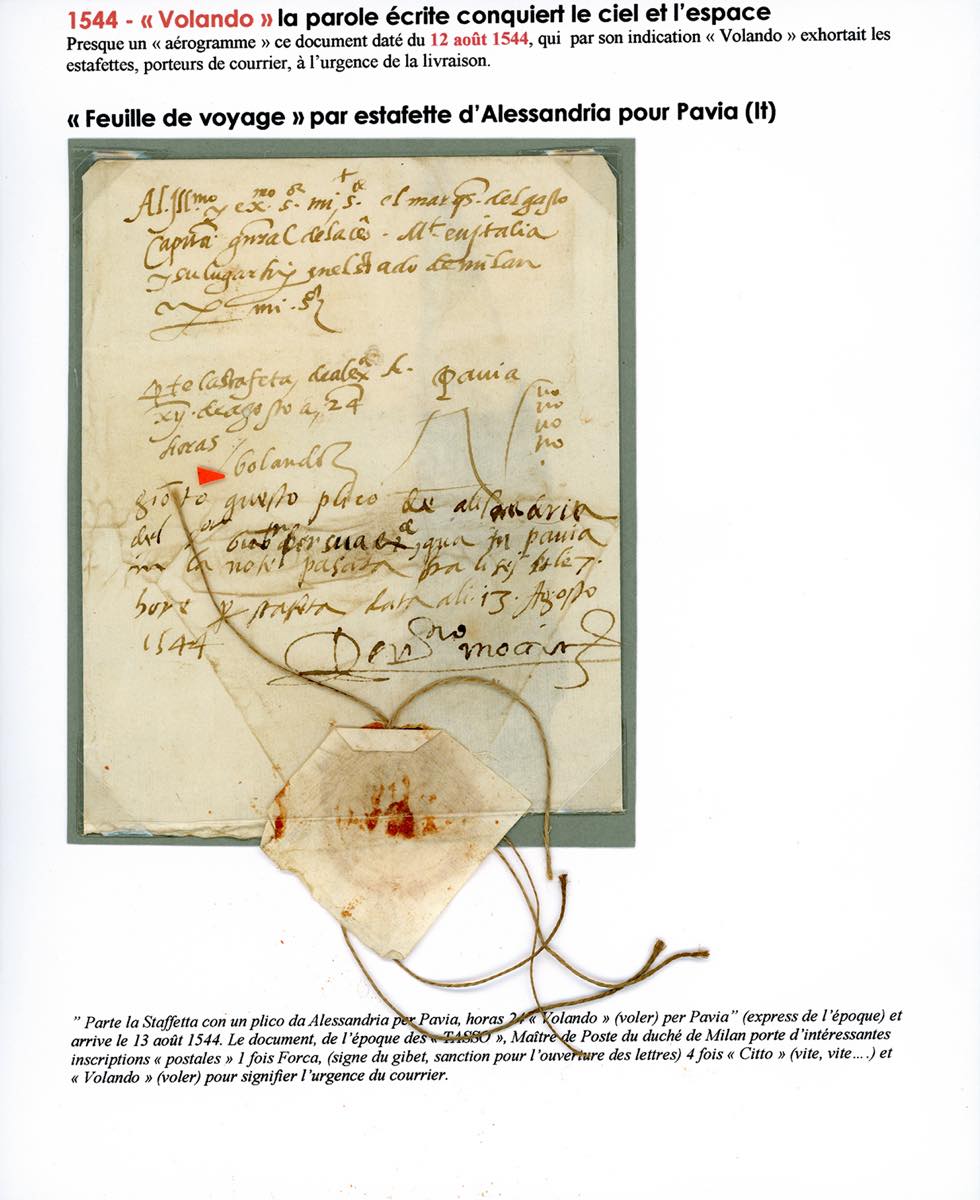 1544 - « Volando » la parole écrite conquiert le ciel et l’espace
Presque un « aérogramme » ce document daté du 12 août 1544, qui par son indication « Volando » exhortait les
estafettes, porteurs de courrier, à l’urgence de la livraison.
« Feuille de voyage » par estafette d’Alessandria pour Pavia (It)
Al Illmo y exmo sor mi sor el marqs del gasto
Capitā gñral de la ces. Mt en italia
y su lugar en el stado de milan
mi sor
pte la stafeta de alexa Pavia
xij de agosto a 24
horas
volando
gionto questo plico da alisandria
del per sua exa qua in pavia
in la note pasata fra li sej et le 7
hore p stafeta data ali 13 Agosto
1544
” Parte la Staffetta con un plico da Alessandria per Pavia, horas 24 « Volando » (voler) per Pavia” (express de l’époque) et
arrive le 13 août 1544. Le document, de l’époque des « TASSO », Maître de Poste du duché de Milan porte d’intéressantes
inscriptions « postales » 1 fois Forca, (signe du gibet, sanction pour l’ouverture des lettres) 4 fois « Citto » (vite, vite….) et
« Volando » (voler) pour signifier l’urgence du courrier.